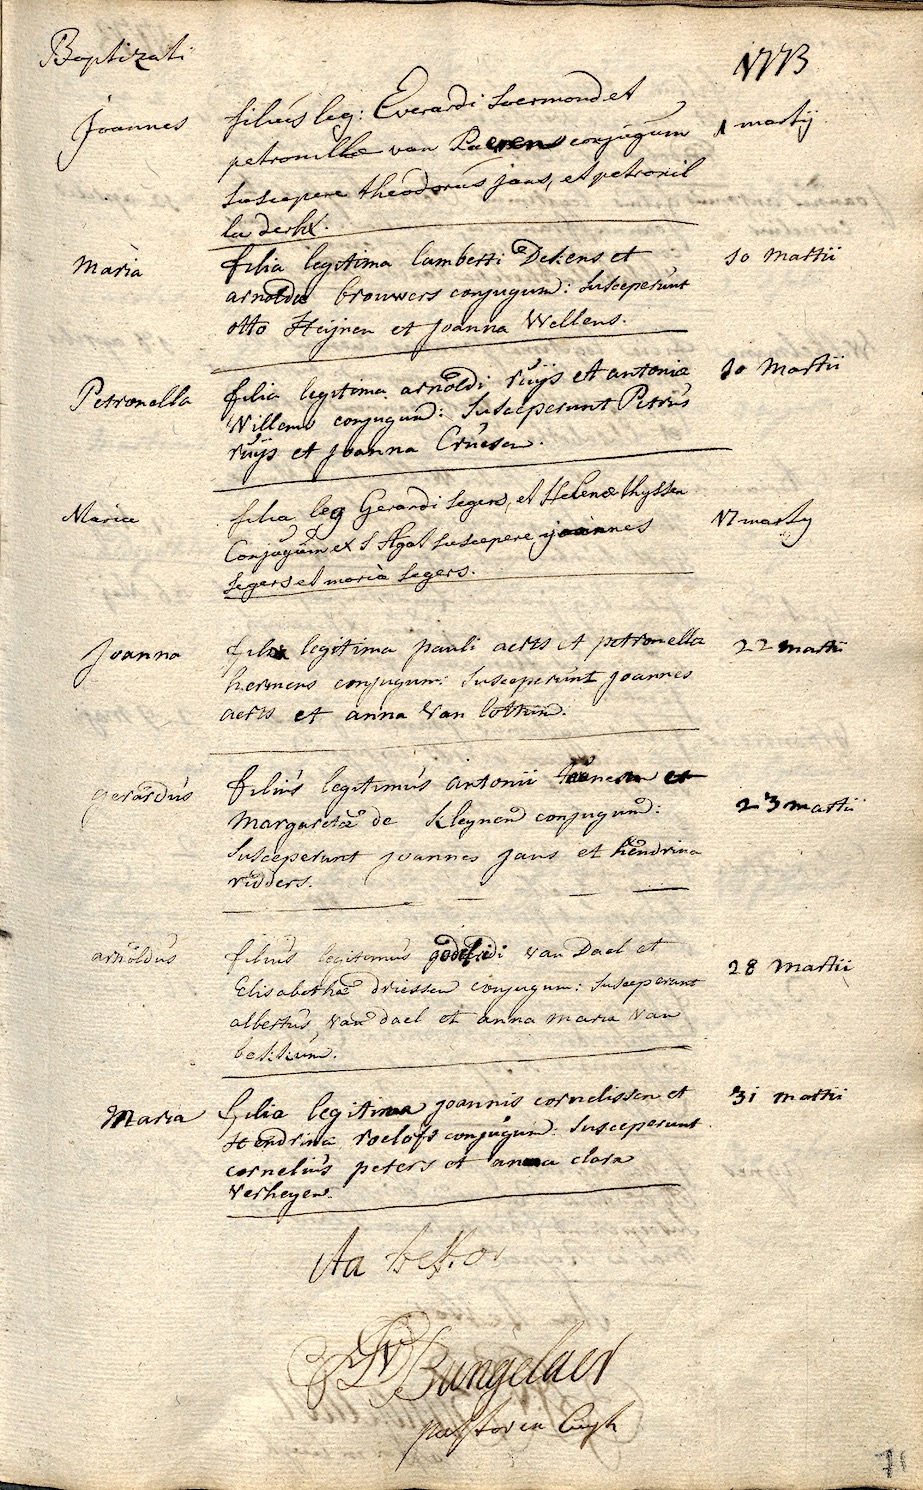 Baptizati
1773
Joannes filius leg: Everardi Loermond et
petronillae van conjugum 1 martij
suscepere theodorus jans, et petronil
la derkx.
Maria filia legitima lamberti Dekens et 10 Martii
arnoldae brouwers conjugum: susceperunt
otto Heijnen et joanna Wellens.
Petronella filia legitima arnoldi ruijs et antoniae 10 Martii
Willems conjugum: susceperunt Petrus
ruijs et joanna Cruesen.
Maria filia leg Gerardi Segers, et Helenae thyssen 17 martij
Conjugum ex S Agat suscepere joannes
Segers et maria Segers.
Joanna filia legitima pauli aerts et petronella 22 martii
hermens conjugum: susceperunt joannes
aerts et anna van
gerardus filius legitimus antonii et 23 martii
Margaretae de Kleynen conjugum:
susceperunt joannes jans et hendrina
ridders.
arnoldus filius legitimus godefridi van Dael et 28 Martii
Elisabethae driessen conjugum: susceperunt
albertus van dael et anna maria van
bekkum.
Maria filia legitima joannis cornelissen et 31 martii
Hendrina roelofs conjugum: susceperunt
cornelius peters et anna clara
verheyen.
Ita testor
Bungelaer
pastor in Cuyk
71